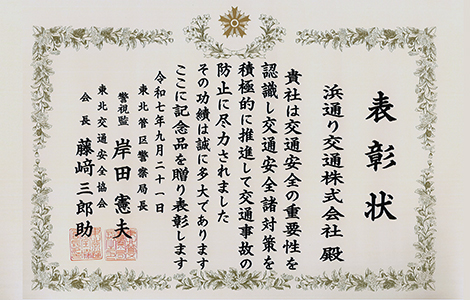 表彰状
浜通り交通株式会社 殿
貴社は交通安全の重要性を
認識し交通安全諸対策を
積極的に推進して交通事故の
防止に尽力されました
その功績は誠に多大であります
ここに記念品を贈り表彰します
令和七年九月二十一日
東北管区警察局長
警視監 岸田憲夫
東北交通安全協会
会長 藤﨑三郎助